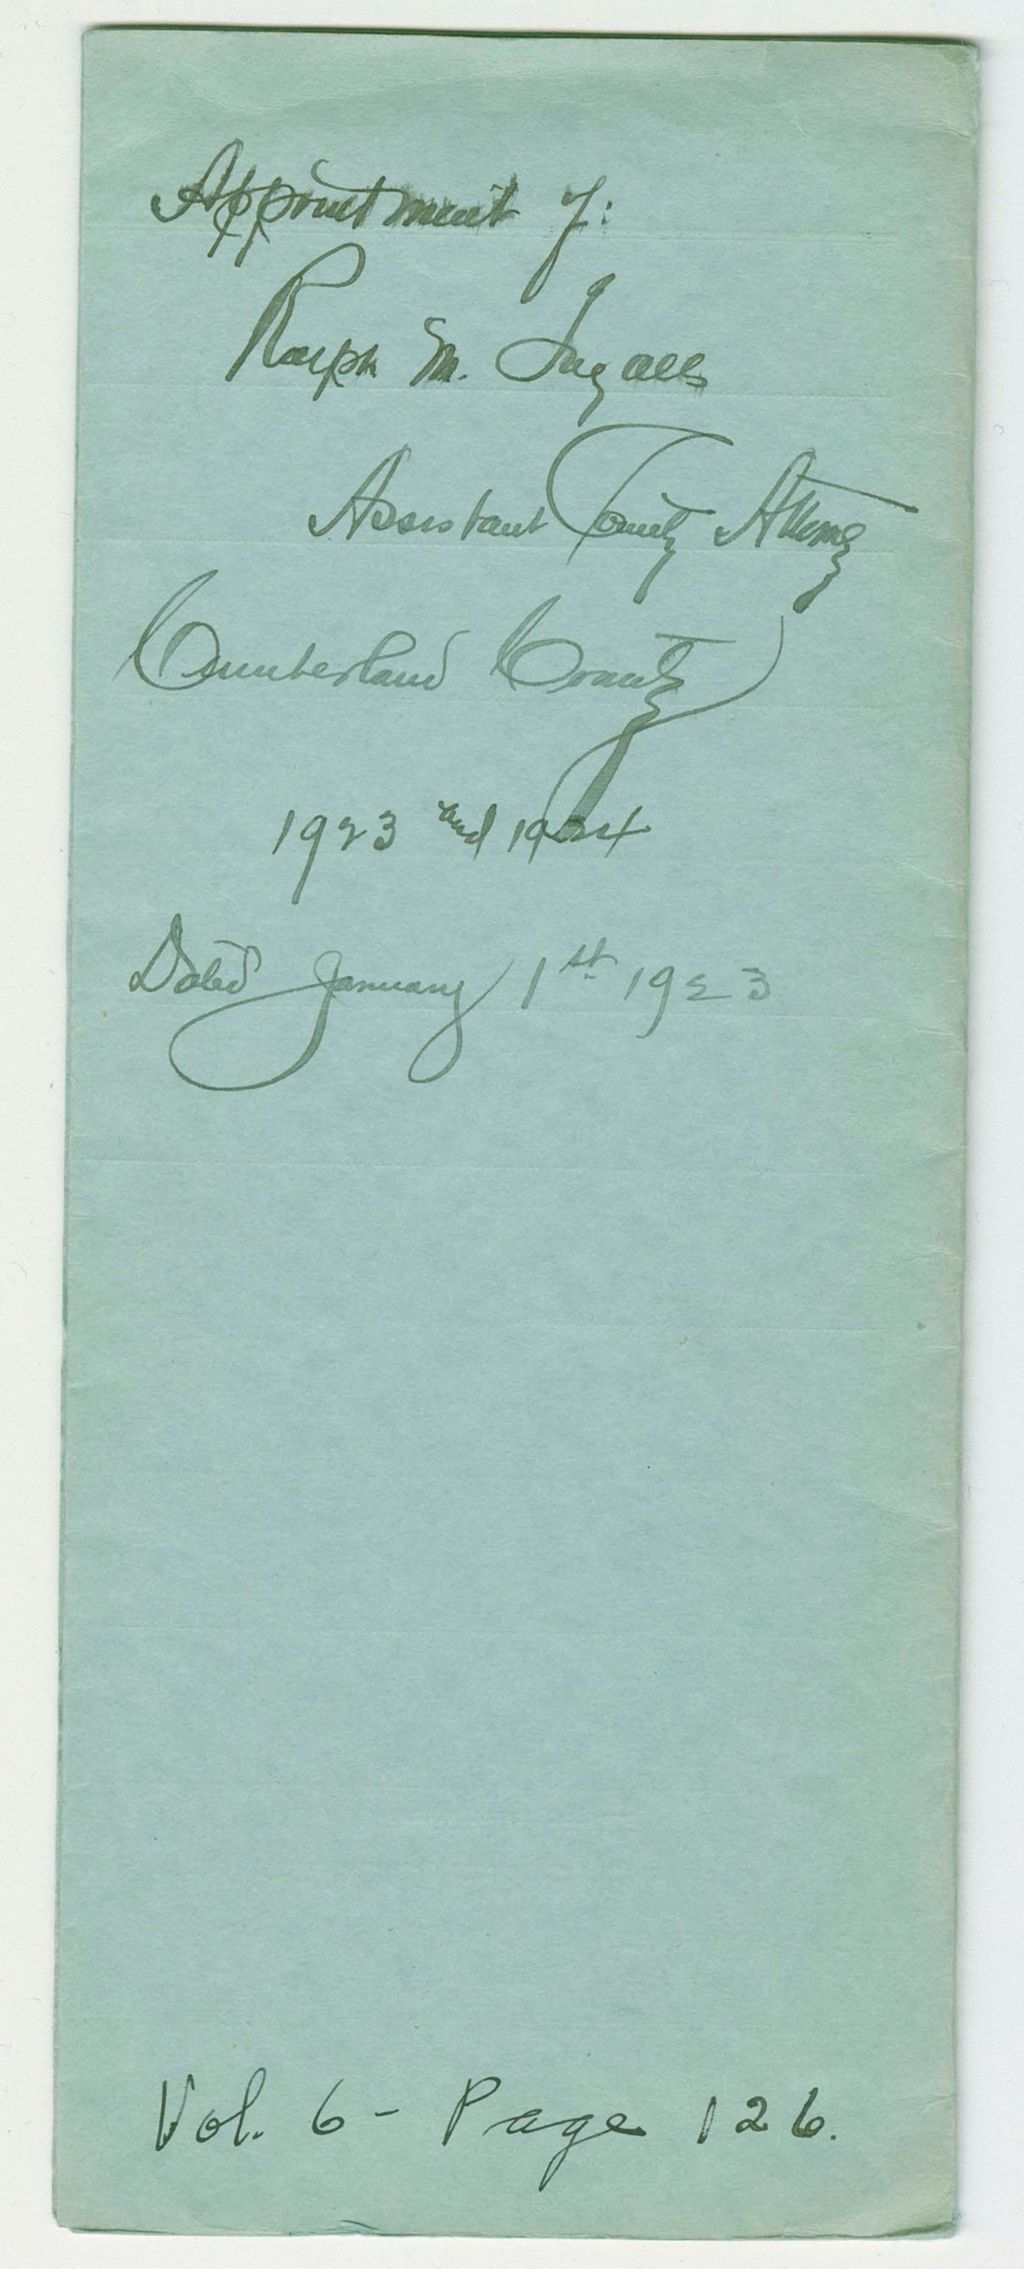 Appointment of:
Ralph M. Ingalls
Assistant County Attorney
Cumberland County
1923 and 1924
Dated January 1st 1923
Vol. 6 - Page 126.